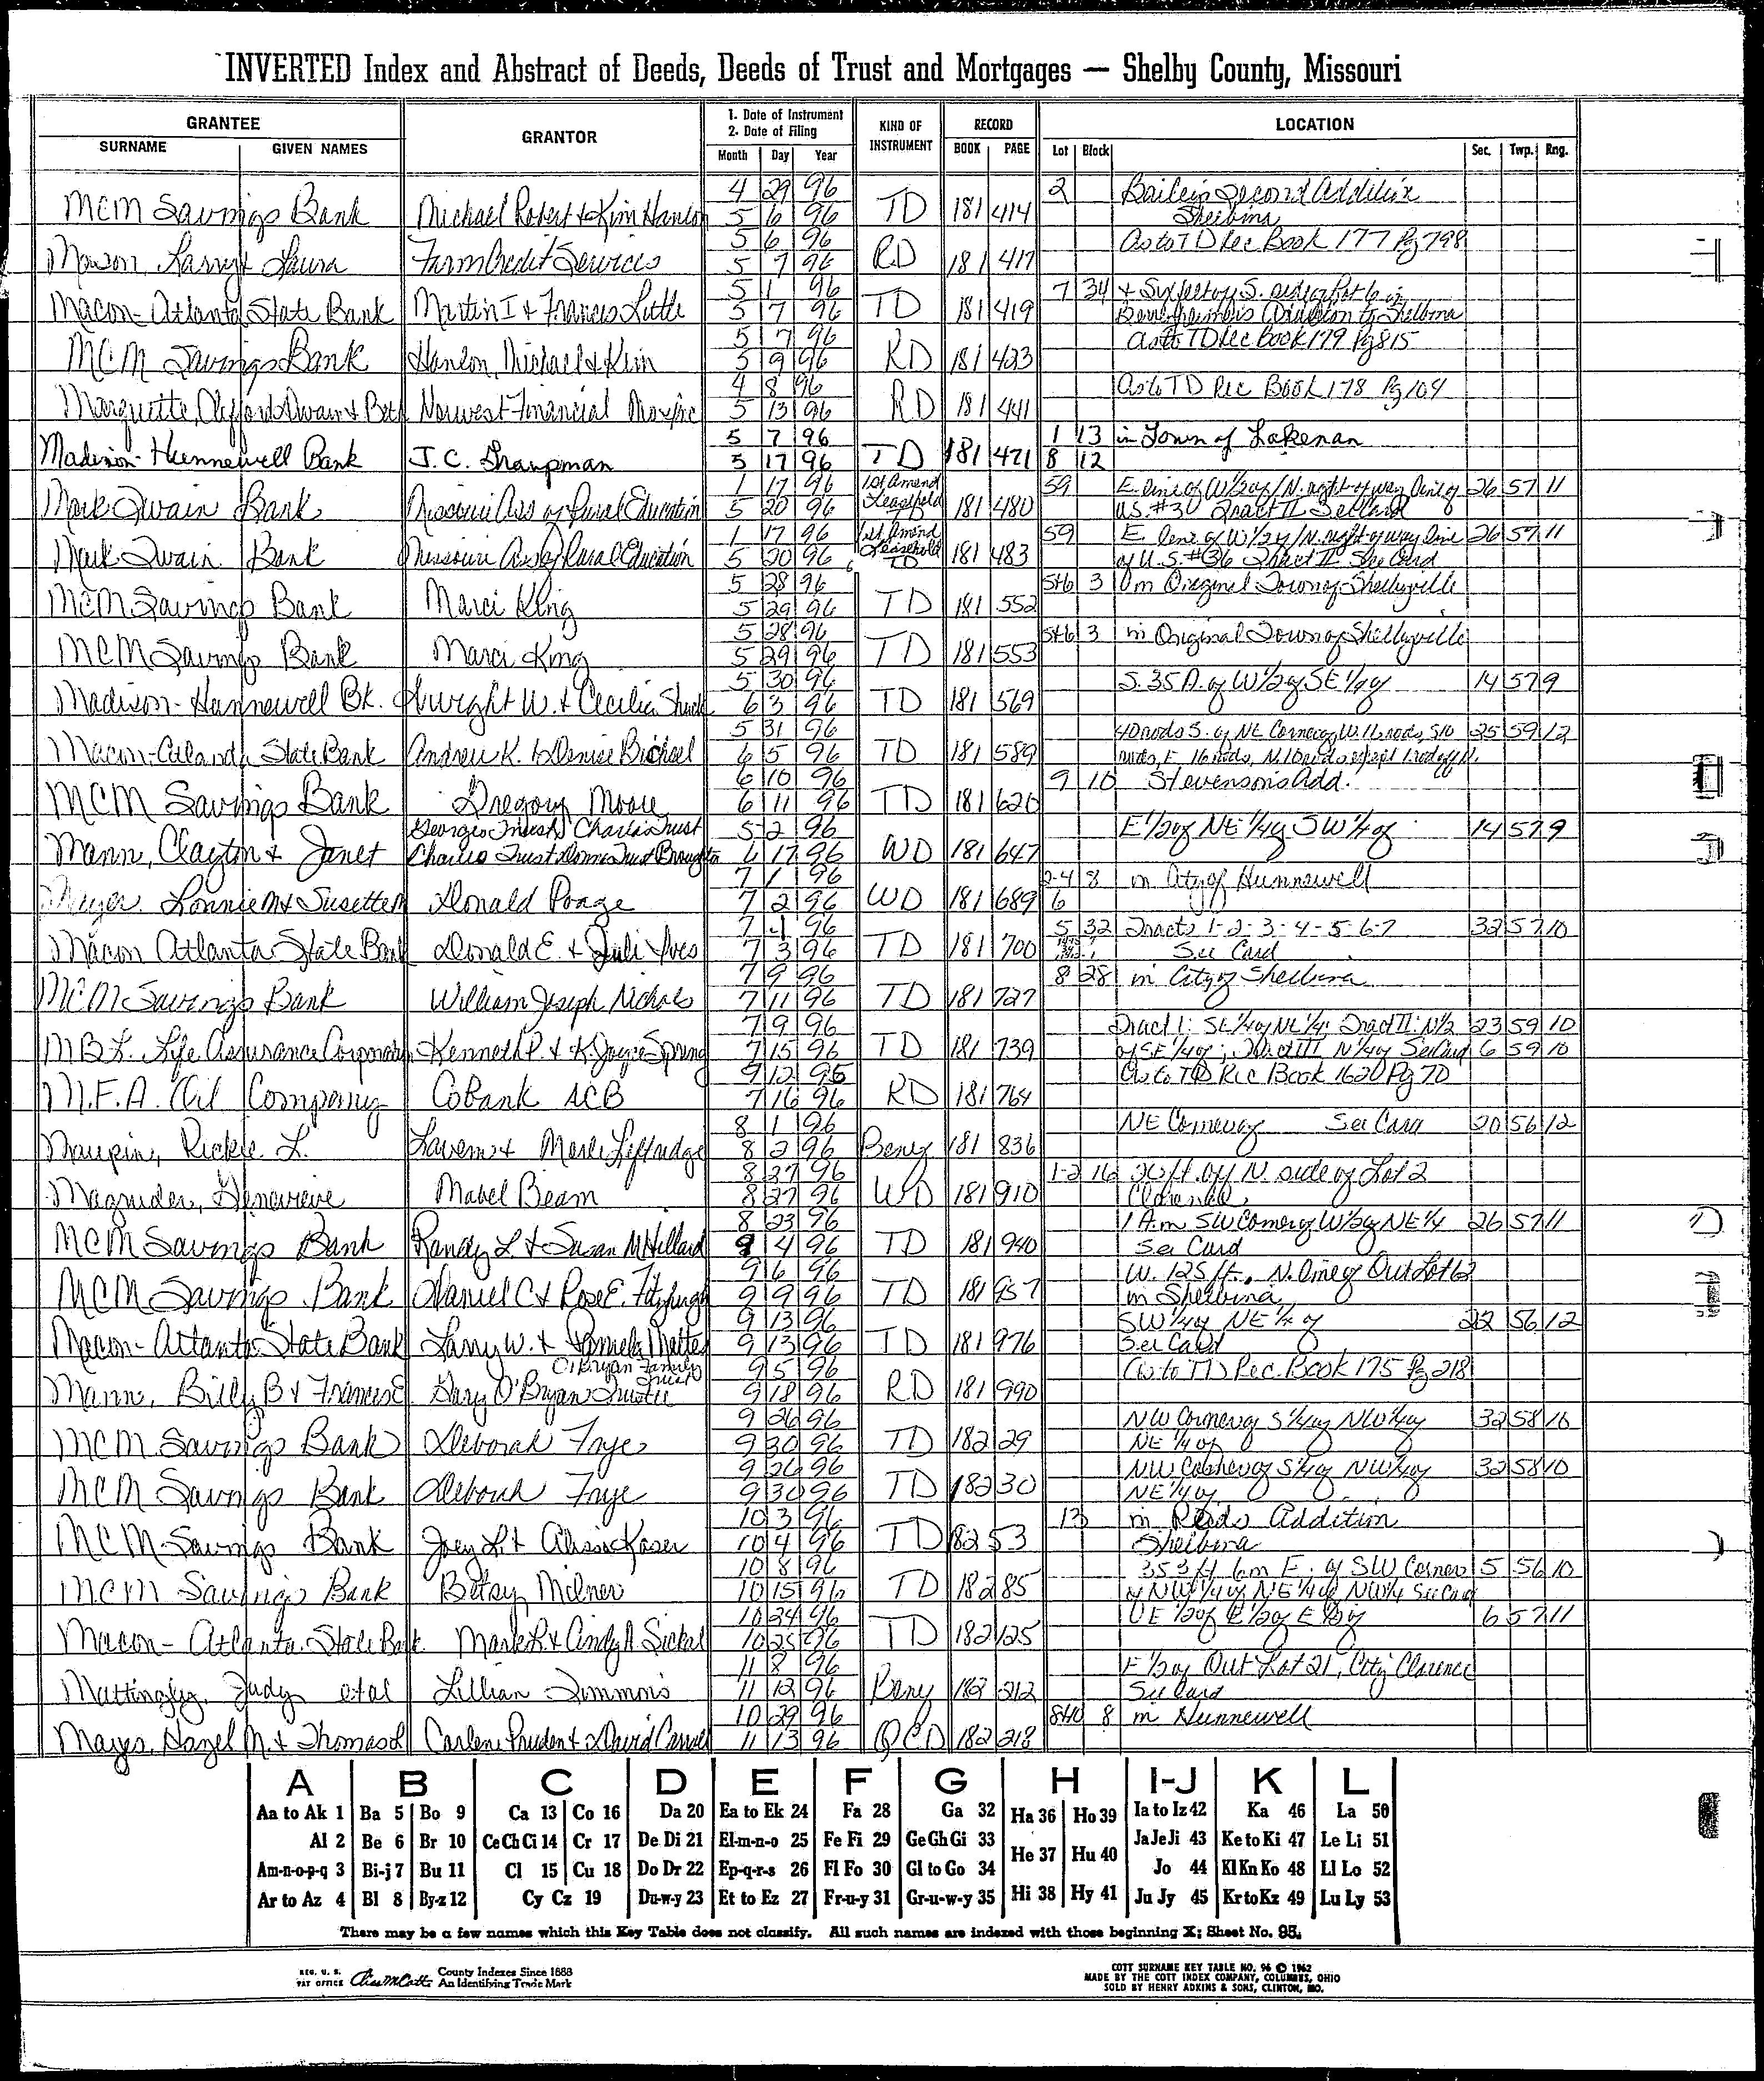 INVERTED Index and Abstract of Deeds, Deeds of Trust and Mortgages — Shelby County, Missouri
GRANTEE GRANTOR 1. Date of Instrument 2. Date of Filing KIND OF INSTRUMENT RECORD LOCATION
SURNAME GIVEN NAMES Month Day Year BOOK PAGE Lot Block Sec. Twp. Rng.
4 29 96 2 Second Addition
MCM Savings Bank Michael Robert & Kim Hanlon 5 6 96 TD 181 414 Shelbina
5 6 96 As to TD Rec Book 177 Pg 798
Larry & Laura Farm Credit Services 5 7 96 RD 181 417
5 1 96 7 34 & Six feet off S. side of Lot 6 in
Macon-Atlanta State Bank Martin I & Frances Little 5 7 96 TD 181 419 Addition to Shelbina
5 7 96 As to TD Rec Book 179 Pg 815
MCM Savings Bank Hanlon, Michael & Kim 5 9 96 RD 181 423
4 8 96 As to TD Rec Book 178 Pg 104
Marquette, Clifford Dwain & Beth Norwest Financial Mo. Inc 5 13 96 RD 181 441
5 7 96 1 13 in Town of Lakenan
Madison-Hunnewell Bank J.C. 5 17 96 TD 181 471 8 12
1 17 96 1st Amend 59 E. line of W 1/2 of / N. right of way line of 26 57 11
Mark Twain Bank Missouri Ass of Rural Education 5 20 96 Leasehold 181 480 U.S. #36 Tract II See Card
1 17 96 1st Amend 59 E line of W 1/2 of / N. right of way line 26 57 11
Mark Twain Bank Missouri Ass of Rural Education 5 20 96 Leasehold TD 181 483 of U.S. #36 Tract II See Card
5 28 96 5+6 3 in Original Town of Shelbyville
MCM Savings Bank Marci King 5 29 96 TD 181 552
5 28 96 5+6 3 in Original Town of Shelbyville
MCM Savings Bank Marci King 5 29 96 TD 181 553
5 30 96 S. 35 A. of W 1/2 of SE 1/4 of 14 57 9
Madison-Hunnewell Bk. Dwight W. & Cecilia 6 3 96 TD 181 569
5 31 96 40 rods S. of NE Corner of W. 16 rods, S 10 25 59 12
Macon-Atlanta State Bank Andrew K. & Denise Bichsel 6 5 96 TD 181 589 rods, E. 16 rods, N. 10 rods except 1 rod off N.
6 10 96 9 10 Stevenson's Add.
MCM Savings Bank Gregory Moore 6 11 96 TD 181 620
Georgeo Trust Charles Trust 5 2 96 E 1/2 of NE 1/4 of SW 1/4 of 14 57 9
Mann, Clayton & Janet Charles Trust 6 17 96 WD 181 647
7 1 96 2-4 8 in City of Hunnewell
Lonnie M & Susette M Donald Poage 7 2 96 WD 181 689 6
7 1 96 5 32 Tracts 1-2-3-4-5-6-7 32 57 10
Macon Atlanta State Bank Donald E. & Juli Ives 7 3 96 TD 181 700 See Card
7 9 96 8 28 in City of Shelbina
MCM Savings Bank William Joseph Nichols 7 11 96 TD 181 727
7 9 96 Tract I: SE 1/4 of NE 1/4; Tract II: N 1/2 23 59 10
MBL Life Assurance Corporation Kenneth P. & K. Joyce Spring 7 15 96 TD 181 739 of SE 1/4 of; Tract III N 1/4 of See Card 6 59 10
9 12 95 As to TD Rec Book 1620 Pg 70
M.F.A. Oil Company CoBank ACB 7 16 96 RD 181 764
8 1 96 NE Corner of See Card 20 56 12
Maupin, Rickie L. Lavern & Merle 8 2 96 Beny 181 836
8 27 96 1-2 16 20 ft. off N. side of Lot 2
Magruder, Genevieve Mabel Beam 8 27 96 WD 181 910 Clarence
8 23 96 1 A. in SW Corner of W 1/2 of NE 1/4 26 57 11
MCM Savings Bank Randy L & Susan M Hillard 9 4 96 TD 181 940 See Card
9 6 96 W. 125 ft. N. line of Out Lot 62
MCM Savings Bank Daniel C & Rose E. Fitzhugh 9 9 96 TD 181 957 in Shelbina
9 13 96 SW 1/4 of NE 1/4 of 22 56 12
Macon-Atlanta State Bank Larry W. & Pamela 9 13 96 TD 181 976 See Card
O'Bryan Family Trust 9 5 96 As to TD Rec. Book 175 Pg 218
Mann, Billy B & Frances E Gary O'Bryan Trustee 9 18 96 RD 181 990
9 26 96 NW Corner of S 1/4 of NW 1/4 of 32 58 10
MCM Savings Bank Deborah Frye 9 30 96 TD 182 29 NE 1/4 of
9 26 96 NW Corner of S 1/4 of NW 1/4 of 32 58 10
MCM Savings Bank Deborah Frye 9 30 96 TD 182 30 NE 1/4 of
10 3 96 13 in Reids Addition
MCM Savings Bank Joey L & Alissa Kaser 10 4 96 TD 182 53 Shelbina
10 8 96 353 ft 6 in E. of SW Corner 5 56 10
MCM Savings Bank Betsy Milner 10 15 96 TD 182 85 of NW 1/4 of NE 1/4 of NW 1/4 See Card
10 24 96 E 1/2 of E 1/2 of 6 57 11
Macon-Atlanta State Bank Mark L & Cindy A. Sickal 10 25 96 TD 182 125
11 8 96 E 1/2 of Out Lot 21, City Clarence
Mattingly, Judy etal Lillian Simmons 11 12 96 Beny 182 212 See Card
10 29 96 8+10 8 in Hunnewell
Mayes, Hazel M. & Thomas L Carlene Pruden & David Carroll 11 13 96 QCD 182 218
A B C D E F G H I-J K L
Aa to Ak 1 Ba 5 Bo 9 Ca 13 Co 16 Da 20 Ea to Ek 24 Fa 28 Ga 32 Ha 36 Ho 39 Ia to Iz 42 Ka 46 La 50
Al 2 Be 6 Br 10 Ce Ch Ci 14 Cr 17 De Di 21 El-m-n-o 25 Fe Fi 29 Ge Gh Gi 33 He 37 Hu 40 Ja Je Ji 43 Ke to Ki 47 Le Li 51
Am-n-o-p-q 3 Bi-j 7 Bu 11 Cl 15 Cu 18 Do Dr 22 Ep-q-r-s 26 Fl Fo 30 Gl to Go 34 Jo 44 Kl Kn Ko 48 Ll Lo 52
Ar to Az 4 Bl 8 By-z 12 Cy Cz 19 Du-w-y 23 Et to Ez 27 Fr-u-y 31 Gr-u-w-y 35 Hi 38 Hy 41 Ju Jy 45 Kr to Kz 49 Lu Ly 53
There may be a few names which this Key Table does not classify. All such names are indexed with those beginning X; Sheet No. 95.
REG. U. S. PAT OFFICE County Indexes Since 1888 An Identifying Trade Mark
COTT SURNAME KEY TABLE NO. 96 © 1962
MADE BY THE COTT INDEX COMPANY, COLUMBUS, OHIO
SOLD BY HENRY ADKINS & SONS, CLINTON, MO.